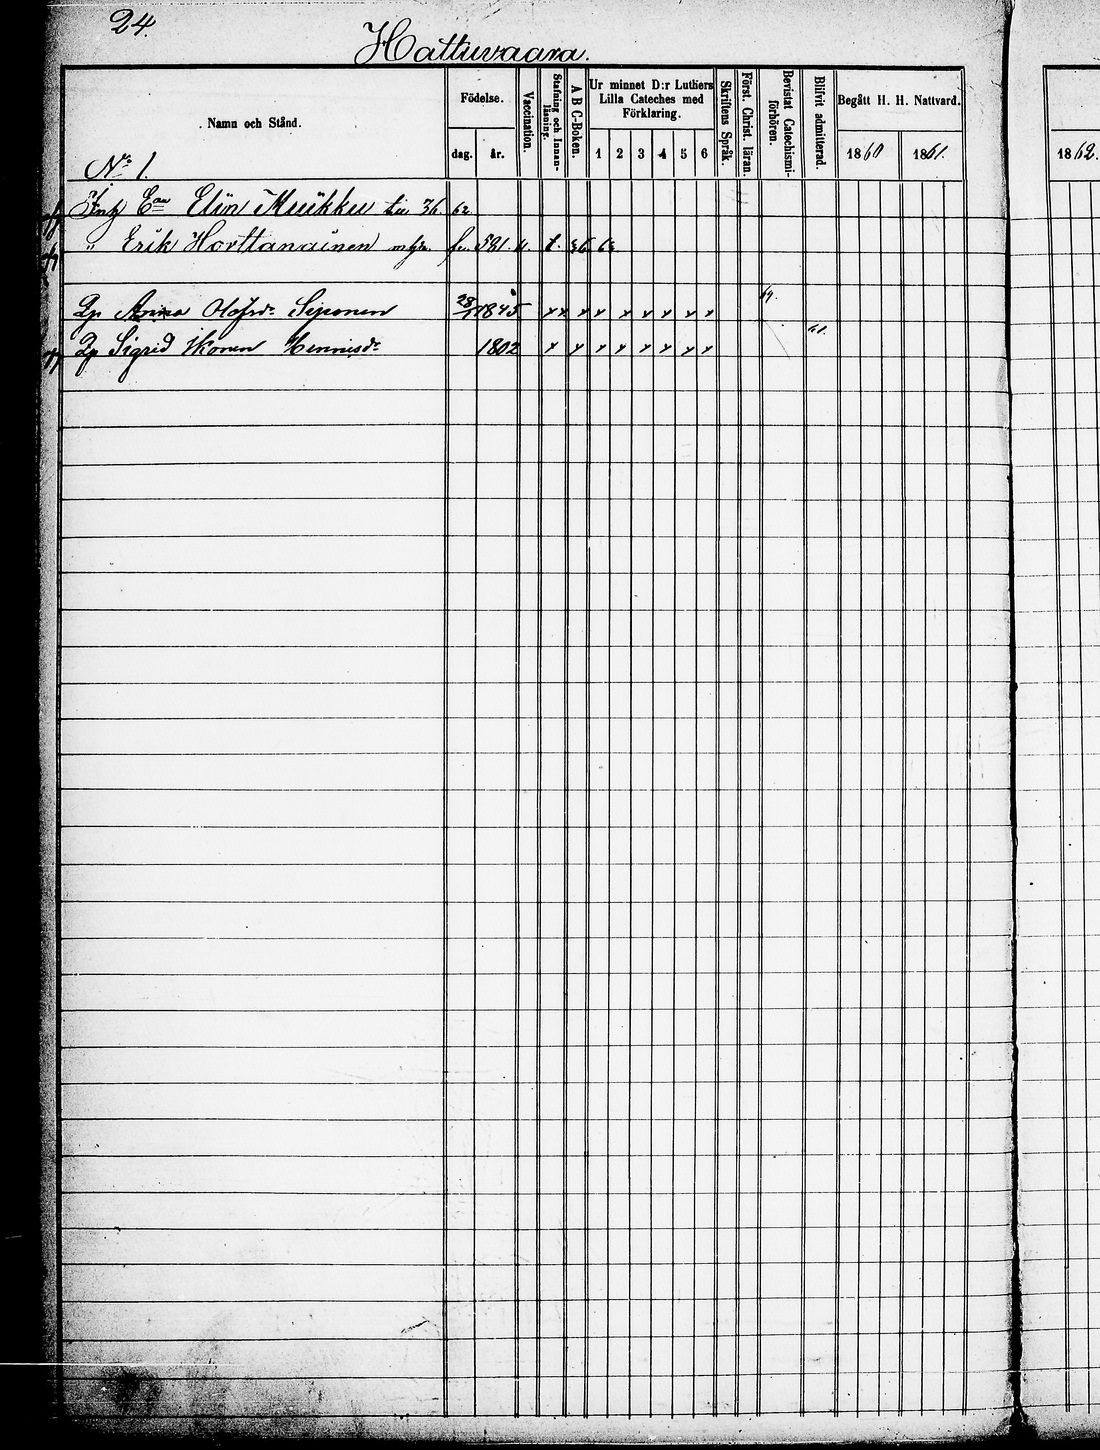 24.
Hattuvaara.
Namn och Stånd.
Födelse.
dag. år.
Vaccination.
Stafning och Innanläsning.
A B C-Boken.
Ur minnet D:r Luthers Lilla Cateches med Förklaring.
1 2 3 4 5 6
Skriftens Språk.
Först. Christ. läran.
Bevistat Catechismi-förhören.
Blifvit admitterad.
Begått H. H. Nattvard.
1860 1861.
1862.
No 1.
Elin Muikku 36 62
" Erik Horttanainen 581.
Anna Olofsdr Siponen 1845 x x x x x x x x x
Sigrid Ikonen 1802 x x x x x x x x